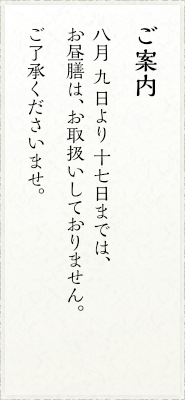 ご案内
八月九日より十七日までは、
お昼膳は、お取扱いしておりません。
ご了承くださいませ。